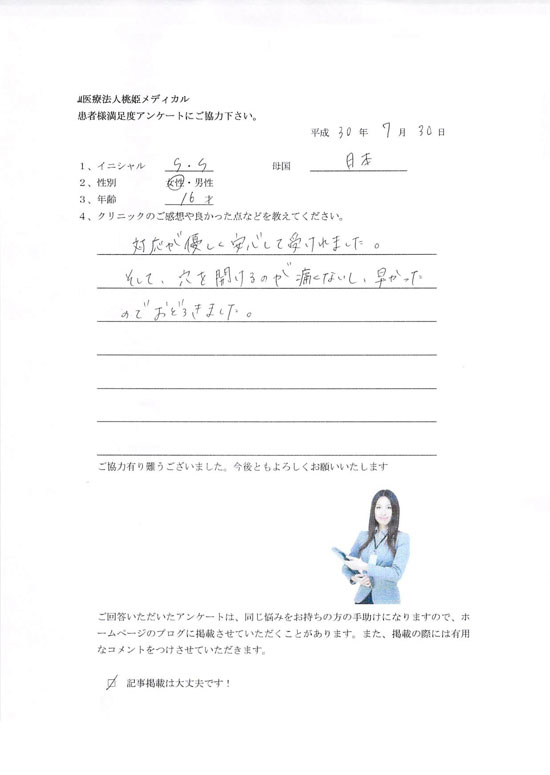 医療法人桃姫メディカル
患者様満足度アンケートにご協力下さい。
平成 30 年 7 月 30 日
1、イニシャル S.S 母国 日本
2、性別 女性・男性
3、年齢 16才
4、クリニックのご感想や良かった点などを教えてください。
対応が優しく安心して受けれました。
そして、穴を開けるのが痛くないし、早かった
のでおどろきました。
ご協力有り難うございました。今後ともよろしくお願いいたします
ご回答いただいたアンケートは、同じ悩みをお持ちの方の手助けになりますので、ホ
ームページのブログに掲載させていただくことがあります。また、掲載の際には有用
なコメントをつけさせていただきます。
□ 記事掲載は大丈夫です！